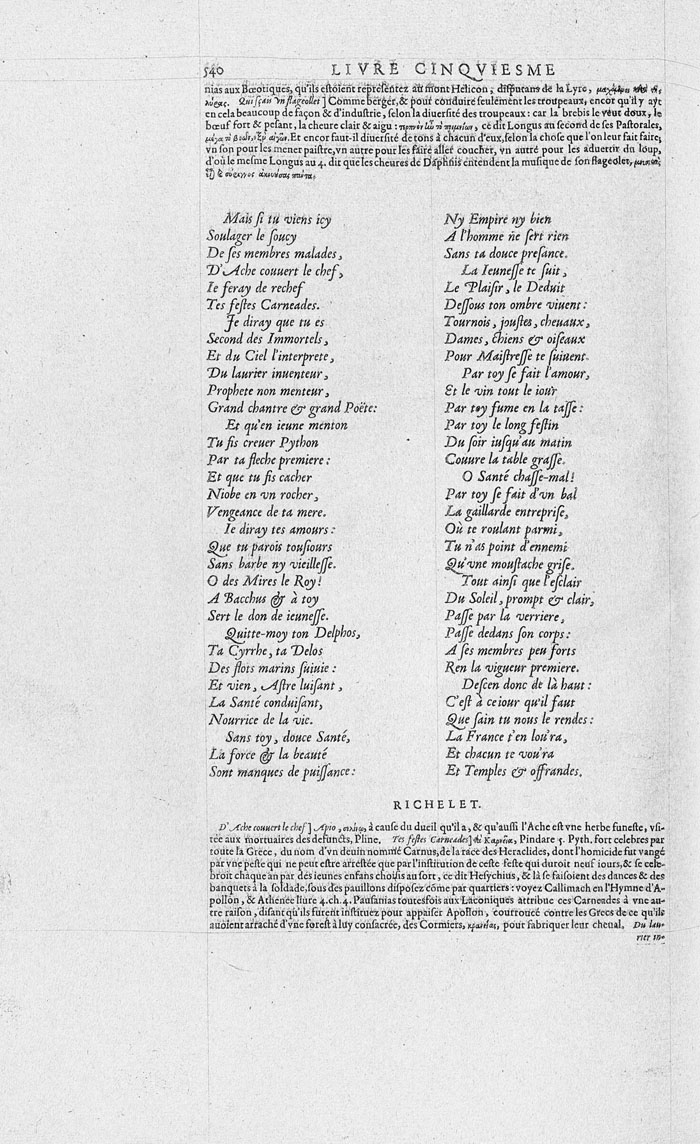 540 LIVRE CINQVIESME
nias aux Bœotiques, qu'ils estoient representez au mont Helicon, disputans de la Lyre,
Qui sçais vn flageollet] Comme berger, & pour conduire seulement les troupeaux, encor qu'il y ayt
en cela beaucoup de façon & d'industrie, selon la diuersité des troupeaux: car la brebis le veut doux, le
bœuf fort & pesant, la cheure clair & aigu: ce dit Longus au second de ses Pastorales,
Et encor faut-il diuersité de tons à chacun d'eux, selon la chose que l'on leur fait faire,
vn son pour les mener paistre, vn autre pour les faire aller coucher, vn autre pour les aduertir du loup,
d'où le mesme Longus au 4. dit que les cheures de Daphnis entendent la musique de son flageolet,
Mais si tu viens icy
Soulager le soucy
De ses membres malades,
D'Ache couuert le chef,
Ie feray de rechef
Tes festes Carneades.
Je diray que tu es
Second des Immortels,
Et du Ciel l'interprete,
Du laurier inuenteur,
Prophete non menteur,
Grand chantre & grand Poëte:
Et qu'en ieune menton
Tu fis creuer Python
Par ta fleche premiere:
Et que tu fis cacher
Niobe en vn rocher,
Vengeance de ta mere.
Ie diray tes amours:
Que tu parois tousiours
Sans barbe ny vieillesse.
O des Mires le Roy!
A Bacchus & à toy
Sert le don de ieunesse.
Quitte-moy ton Delphos,
Ta Cyrrhe, ta Delos
Des flots marins suiuie:
Et vien, Astre luisant,
La Santé conduisant,
Nourrice de la vie.
Sans toy, douce Santé,
La force & la beauté
Sont manques de puissance:
Ny Empire ny bien
A l'homme ne sert rien
Sans ta douce presance.
La Ieunesse te suit,
Le Plaisir, le Deduit
Dessous ton ombre viuent:
Tournois, joustes, cheuaux,
Dames, chiens & oiseaux
Pour Maistresse te suiuent.
Par toy se fait l'amour,
Et le vin tout le iour
Par toy fume en la tasse:
Par toy le long festin
Du soir iusqu'au matin
Couure la table grasse.
O Santé chasse-mal!
Par toy se fait d'vn bal
La gaillarde entreprise,
Où te roulant parmi,
Tu n'as point d'ennemi
Qu'vne moustache grise.
Tout ainsi que l'esclair
Du Soleil, prompt & clair,
Passe par la verriere,
Passe dedans son corps:
A ses membres peu forts
Ren la vigueur premiere.
Descen donc de là haut:
C'est à ce iour qu'il faut
Que sain tu nous le rendes:
La France t'en lou'ra,
Et chacun te vou'ra
Et Temples & offrandes.
RICHELET.
D'Ache couuert le chef] Apio, à cause du dueil qu'il a, & qu'aussi l'Ache est vne herbe funeste, vsi-
tée aux mortuaires des defuncts, Pline. Tes festes Carneades] Pindare 5. Pyth. fort celebres par
toute la Grece, du nom d'vn deuin nommé Carnus, de la race des Heraclides, dont l'homicide fut vangé
par vne peste qui ne peut estre arrestée que par l'institution de ceste feste qui duroit neuf iours, & se cele-
broit chaque an par des ieunes enfans choisis au sort, ce dit Hesychius, & là se faisoient des dances & des
banquets à la soldade, sous des pauillons disposez come par quartiers: voyez Callimach en l'Hymne d'A-
pollon, & Athenée liure 4. ch. 4. Pausanias toutesfois aux Laconiques attribue ces Carneades à vne au-
tre raison, disant qu'ils furent instituez pour appaiser Apollon, courroucé contre les Grecs de ce qu'ils
auoient arraché d'vne forest à luy consacrée, des Cormiers, pour fabriquer leur cheual. Du lau-
rier in-